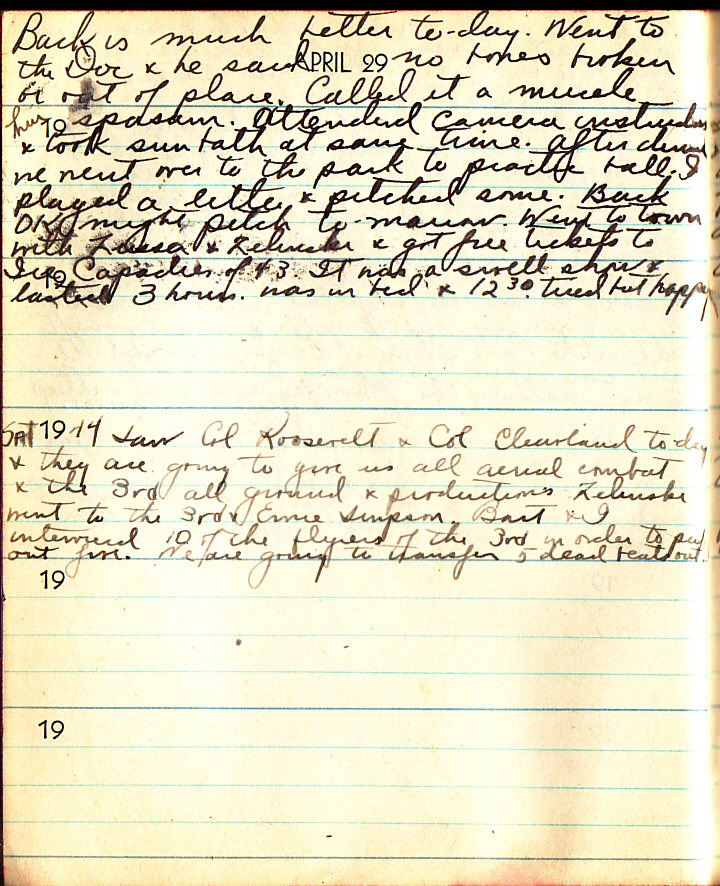 Back is much better to-day. Went to
the Doc & he said APRIL 29 no bones broken
or out of place. Called it a muscle
19 spasam. Attended camera
& took sun bath at same time. After
we went over to the park to practice ball. I
played a little & pitched some. Back
OK might pitch to-morrow. Went to town
with & Zelinske & got free tickets to
Ice Capades of 43 It was a swell show &
19
lasted 3 hours. was in bed & 12 30. tired but happy
Sat 1944 Saw Col Roosevelt & Col to-day
& they are going to give us all aerial combat
& the 3rd all ground & productions Zelinske
went to the 3rd & Ernie Simpson, Bart & I
10 of the flyers of the 3rd in order to put
out five. We are going to transfer 5 dead beats out.
19
19